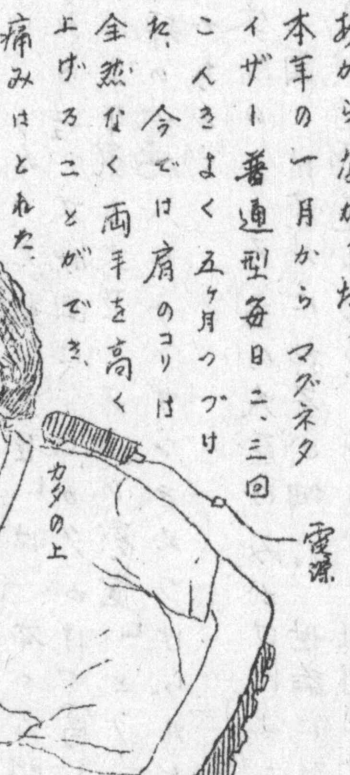 あがらなかった
本年の一月から マグネタ
イザー普通型毎日二、三回
こんきよく五ヶ月つづけ
た、今では肩のコリは
全然なく両手を高く
上げることができ、
痛みはとれた、
カタの上
電源